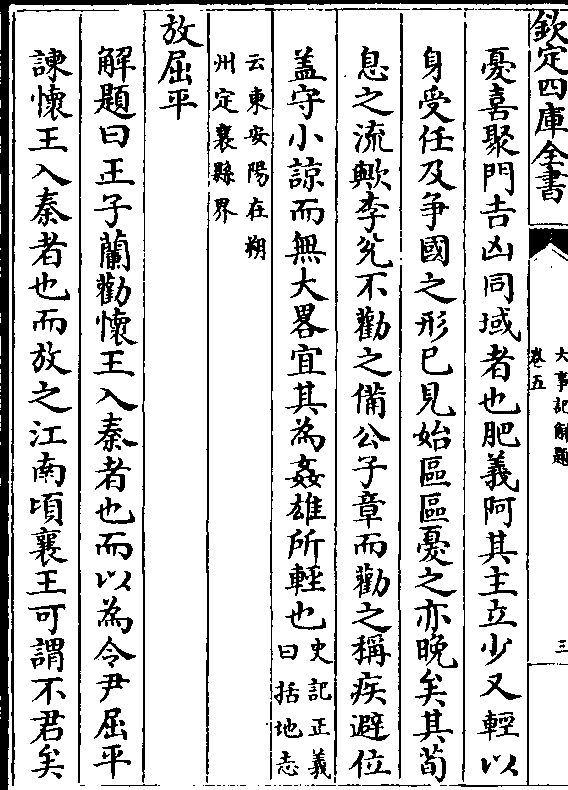 欽定四庫全書
大事記解題
卷五
三
憂喜聚門吉凶同域者也肥義阿其主立少又輕以
身受任及爭國之形已見始區區憂之亦晚矣其荀
息之流歟李兊不勸之備公子章而勸之稱疾避位
盖守小諒而無大畧宜其為姦雄所輕也史記正義
曰括地志
云東安陽在朔
州定襄縣界
放屈平
解題曰王子蘭勸懷王入秦者也而以為令尹屈平
諫懷王入秦者也而放之江南頃襄王可謂不君矣